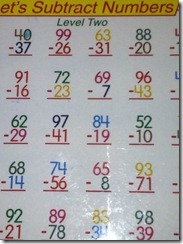 et's Subtract Numbers
Level Two
40 99 63 88
-37 -26 -31 -20
91 72 69 96
-16 -23 -7 -43
62 97 84 52
-29 -41 -19 -10
68 74 65 93
-14 -56 -8 -71
92 89 83 98
-21 -78 -34 -39